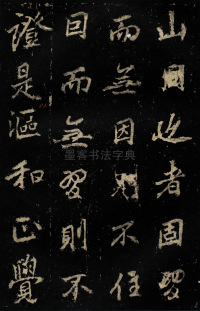 山因也者固習
而無因則不住
因而無習則不
證是漚和正覺
墨客书法字典